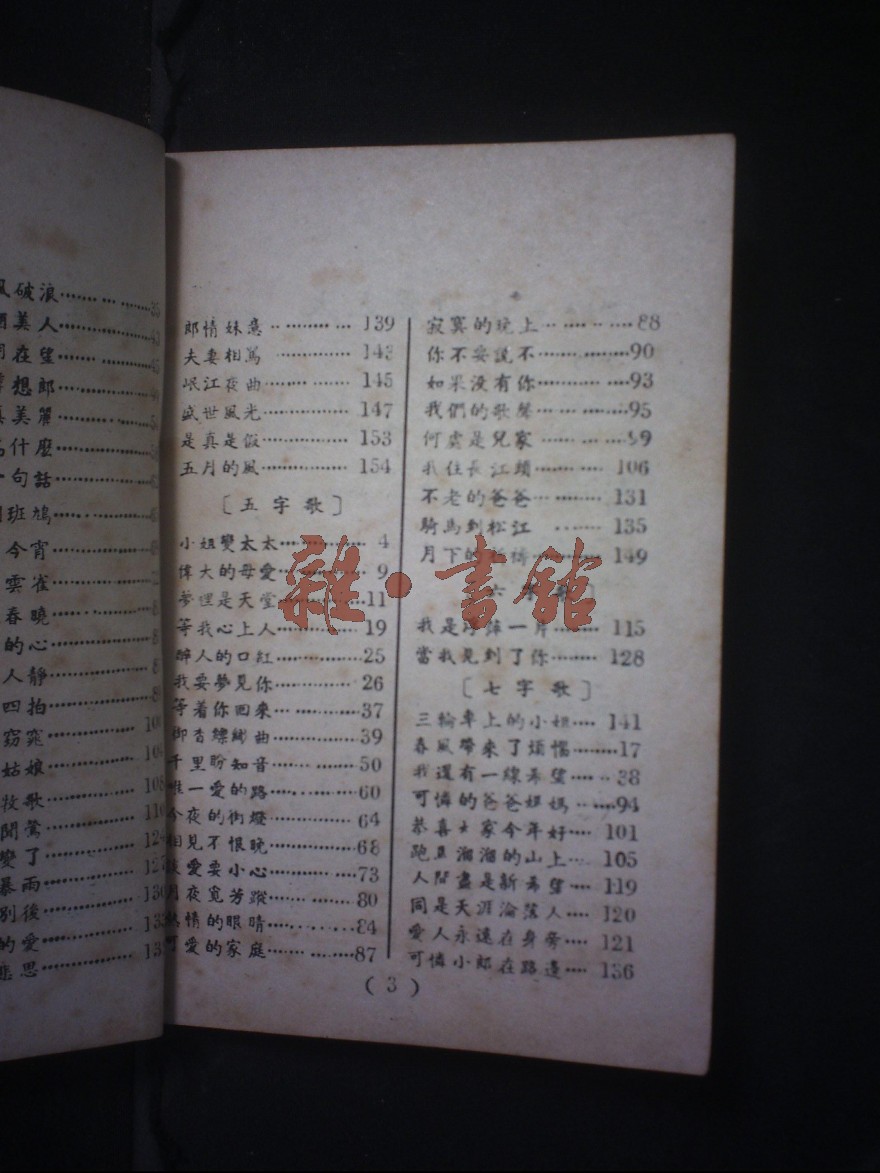 破浪……35
美人……43
在望……45
想郎
美麗
什麼
句話
班鳩
今宵
雲雀
春曉
的心
人靜
四拍
窈窕
姑娘
牧歌
聞鶯
變了
暴雨
別後
的愛
思
郎情妹意……139
夫妻相罵……143
岷江夜曲……145
盛世風光……147
是真是假……153
五月的風……154
〔五字歌〕
小姐變太太……4
偉大的母愛……9
夢裡是天堂……11
等我心上人……19
醉人的口紅……25
我要夢見你……26
等着你回來……37
御香縹緲曲……39
千里盼知音……50
唯一愛的路……60
今夜的街燈……64
相見不恨晚……68
談愛要小心……73
月夜覓芳蹤……80
熱情的眼睛……84
可愛的家庭……87
寂寞的晚上……88
你不要說不……90
如果沒有你……93
我們的歌聲……95
何處是兒家……99
我住長江頭……106
不老的爸爸……131
騎馬到松江……135
月下的……149
六 歌〕
我是浮萍一片……115
當我見到了你……128
〔七字歌〕
三輪車上的小姐……141
春風帶來了煩惱……17
我還有一線希望……38
可憐的爸爸媽媽……94
恭喜大家今年好……101
跑馬溜溜的山上……105
人間盡是新希望……119
同是天涯淪落人……120
愛人永遠在身旁……121
可憐小郎在路邊……136
(3)
雜·書館